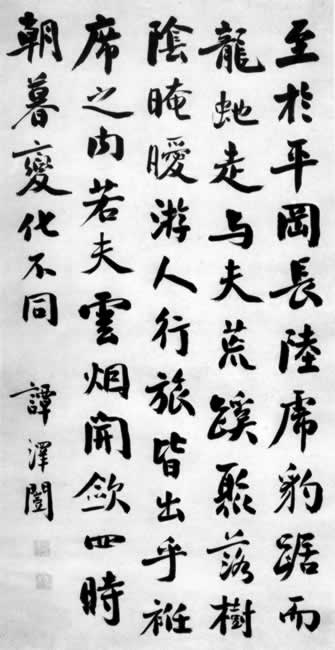 至於平岡長陸虎豹踞而
龍虵走与夫荒蹊聚落樹
陰晻曖游人行旅皆出乎袵
席之内若夫雲烟開歛四時
朝暮變化不同
譚澤闓